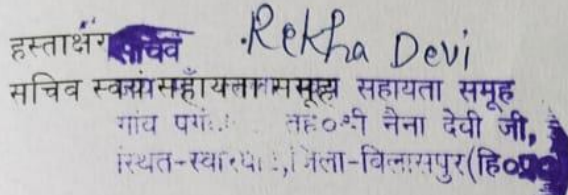 हस्ताक्षर सचिव Rekha Devi
सचिव स्वयं सहायता समूह सहायता समूह
गांव तह०श्री नैना देवी जी,
जिला-बिलासपुर (हि०प्र०)